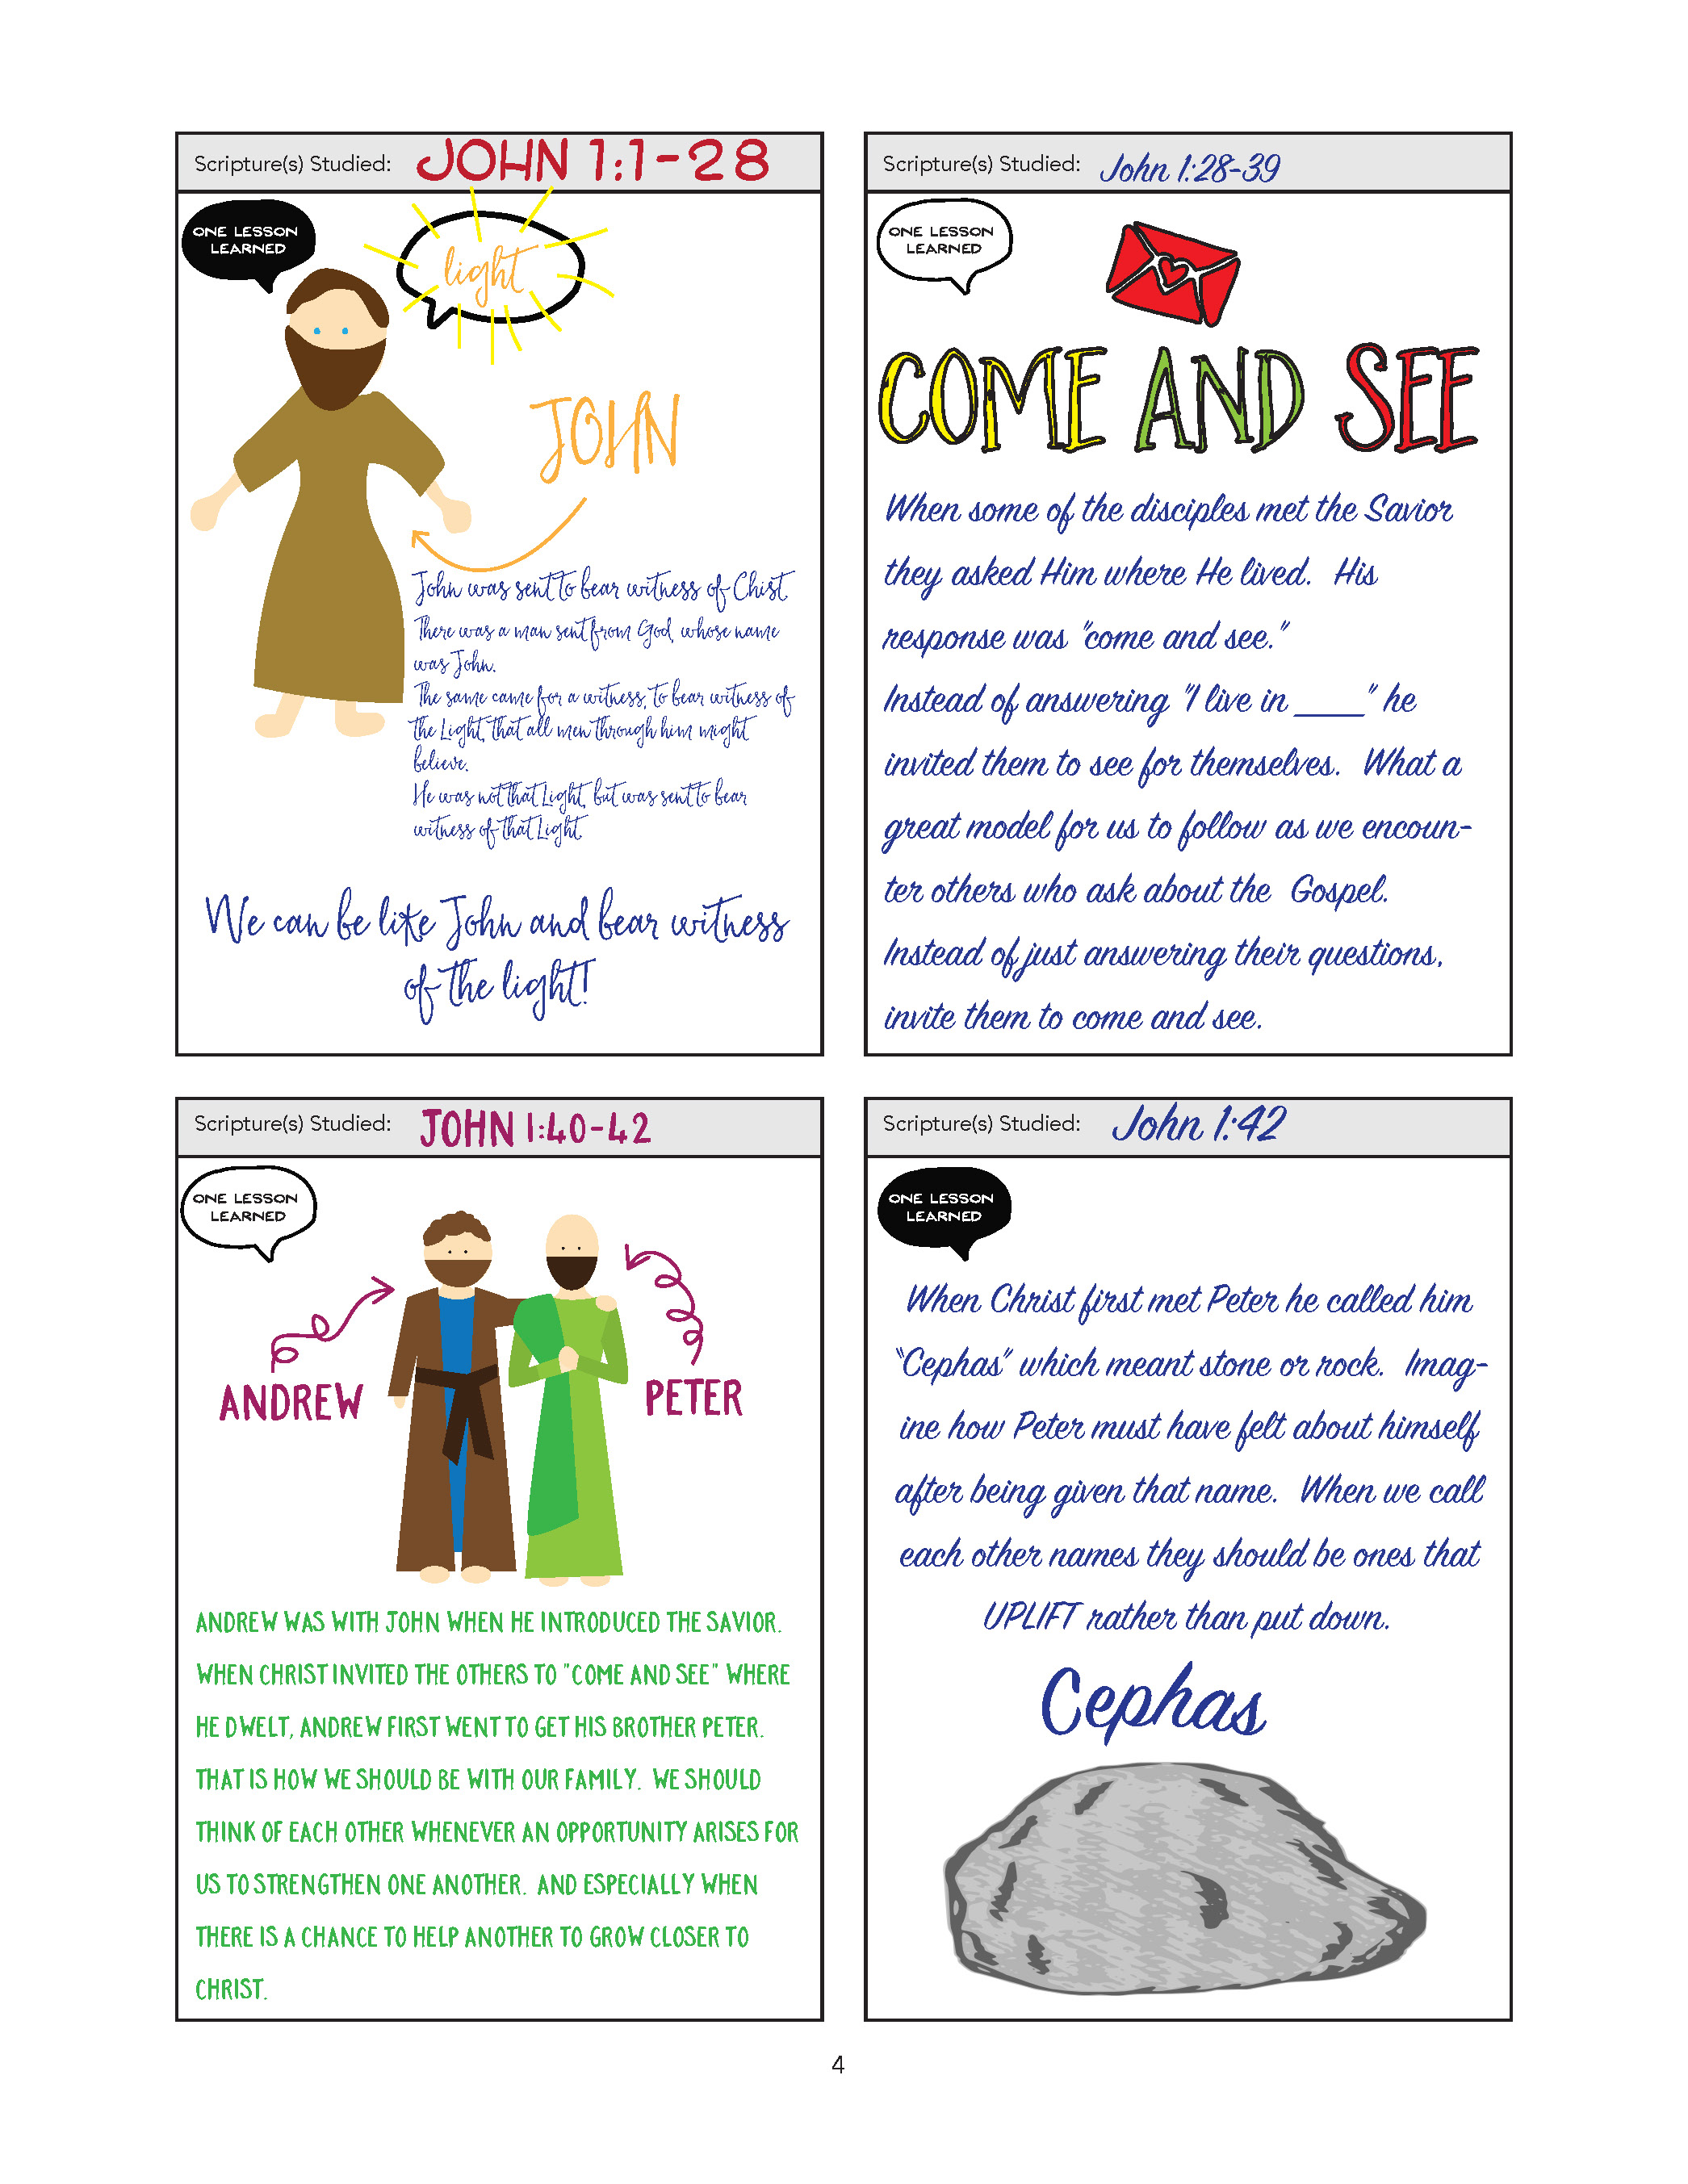 Scripture(s) Studied: JOHN 1:1-28
ONE LESSON
LEARNED
light
JOHN
John was sent to bear witness of Chist.
There was a man sent from God, whose name
was John.
The same came for a witness, to bear witness of
the Light, that all men through him might
believe.
He was not that Light, but was sent to bear
witness of that Light.
We can be like John and bear witness
of the light!
Scripture(s) Studied: John 1:28-39
ONE LESSON
LEARNED
COME AND SEE
When some of the disciples met the Savior
they asked Him where He lived. His
response was "come and see."
Instead of answering "I live in ____" he
invited them to see for themselves. What a
great model for us to follow as we encoun-
ter others who ask about the Gospel.
Instead of just answering their questions,
invite them to come and see.
Scripture(s) Studied: JOHN 1:40-42
ONE LESSON
LEARNED
ANDREW
PETER
ANDREW WAS WITH JOHN WHEN HE INTRODUCED THE SAVIOR.
WHEN CHRIST INVITED THE OTHERS TO "COME AND SEE" WHERE
HE DWELT, ANDREW FIRST WENT TO GET HIS BROTHER PETER.
THAT IS HOW WE SHOULD BE WITH OUR FAMILY. WE SHOULD
THINK OF EACH OTHER WHENEVER AN OPPORTUNITY ARISES FOR
US TO STRENGTHEN ONE ANOTHER. AND ESPECIALLY WHEN
THERE IS A CHANCE TO HELP ANOTHER TO GROW CLOSER TO
CHRIST.
Scripture(s) Studied: John 1:42
ONE LESSON
LEARNED
When Christ first met Peter he called him
"Cephas" which meant stone or rock. Imag-
ine how Peter must have felt about himself
after being given that name. When we call
each other names they should be ones that
UPLIFT rather than put down.
Cephas
4